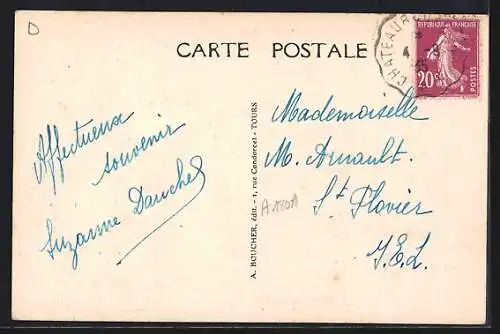 D
CARTE POSTALE
REPUBLIQUE FRANÇAISE
20 c.
POSTES
CHATEAUR
4
Affectueux
souvenir
Suzanne
A. BOUCHER, édit. - 1, rue Condorcet - TOURS
Mademoiselle
M. Arnault.
St Flovier
I. E. L.